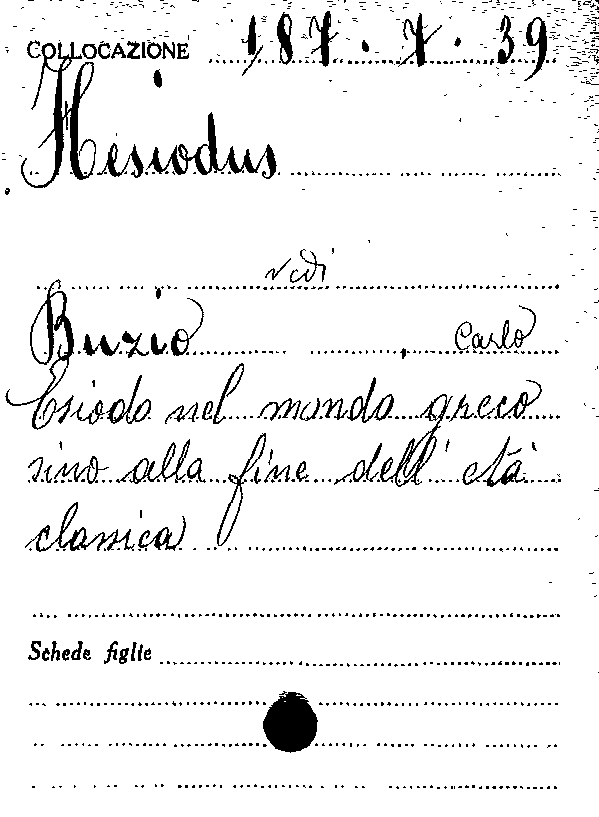 COLLOCAZIONE 187.7.39
Hesiodus
vedi
Buzio, Carlo
Esiodo nel mondo greco
sino alla fine dell' età
classica
Schede figlie